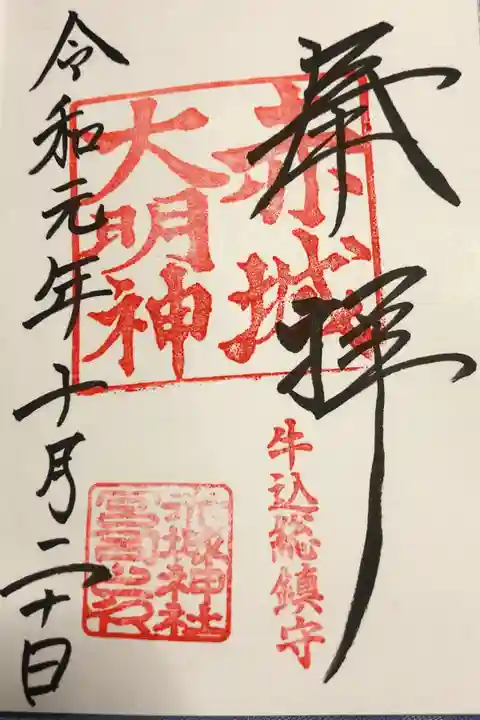 奉拝
赤城
大明神
牛込総鎮守
赤城神社
宮司之印
令和元年十月二十日